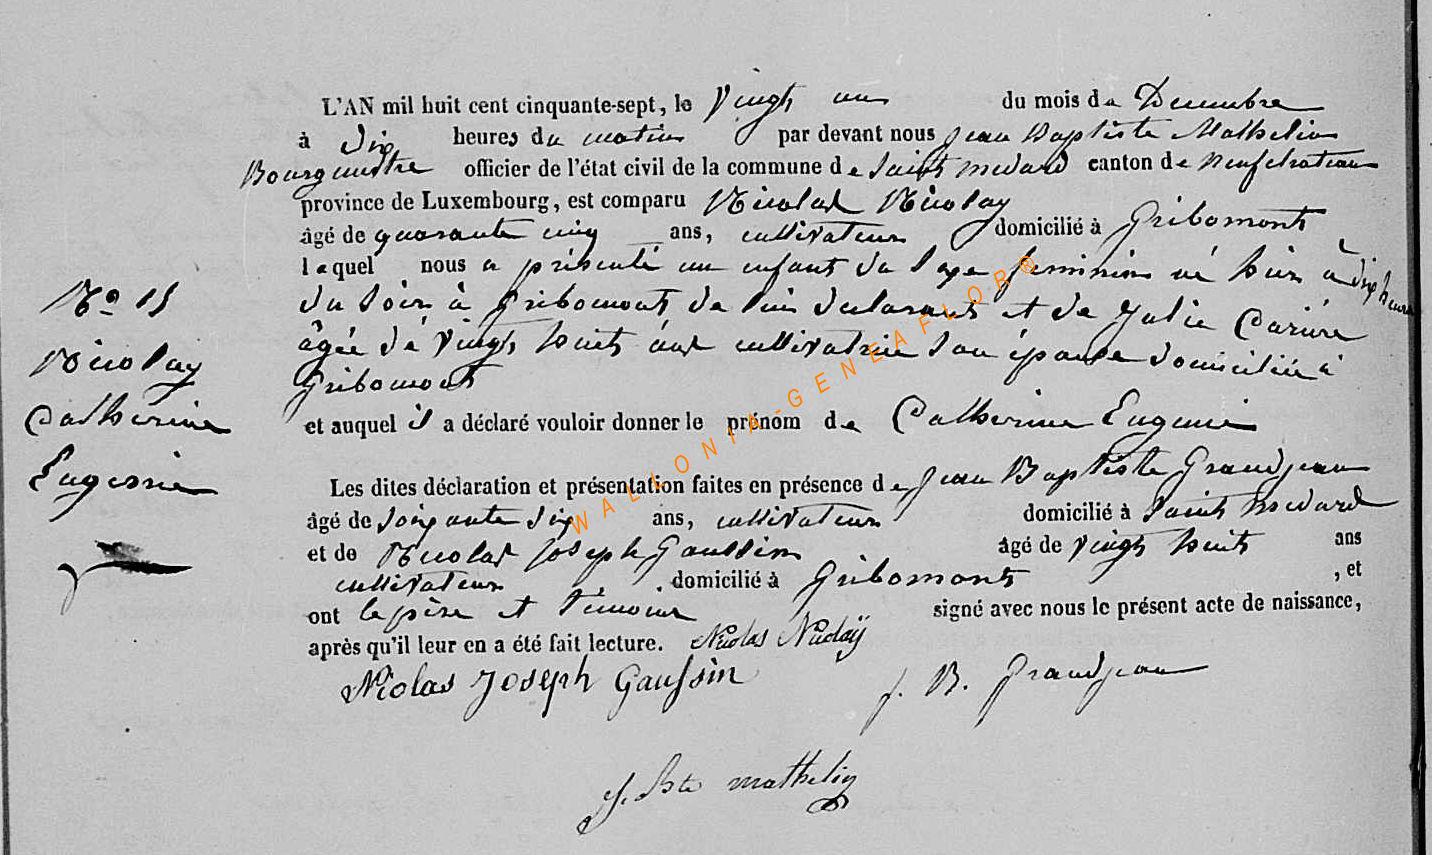 L'AN mil huit cent cinquante-sept, le Vingt un du mois de Decembre
à dix heures du matin par devant nous Jean Baptiste Mathelin
Bourgmestre officier de l'état civil de la commune de Saint medard canton de Neufchateau
province de Luxembourg, est comparu Nicolas Nicolay
âgé de quarante cinq ans, cultivateur domicilié à Gribomont
lequel nous a présenté un enfant du Sexe feminin né hier à dix heures
du Soir à Gribomont de lui declarant et de Julie
âgée de Vingt huit ans cultivatrice Son épouse domiciliée à
Gribomont
et auquel il a déclaré vouloir donner le prénom de Catherine Eugenie
Les dites déclaration et présentation faites en présence de Jean Baptiste Grandjean
âgé de Soixante Six ans, cultivateur domicilié à Saint medard
et de Nicolas Joseph Gaussin âgé de vingt huit ans
cultivateur domicilié à Gribomont , et
ont le père et témoins signé avec nous le présent acte de naissance,
après qu'il leur en a été fait lecture. Nicolas Nicolaÿ
Nicolas Joseph Gaussin J. B. Grandjean
J. Bte mathelin
Nicolay
Catherine
Eugenie
WALLONIA-GENEAFLOR®